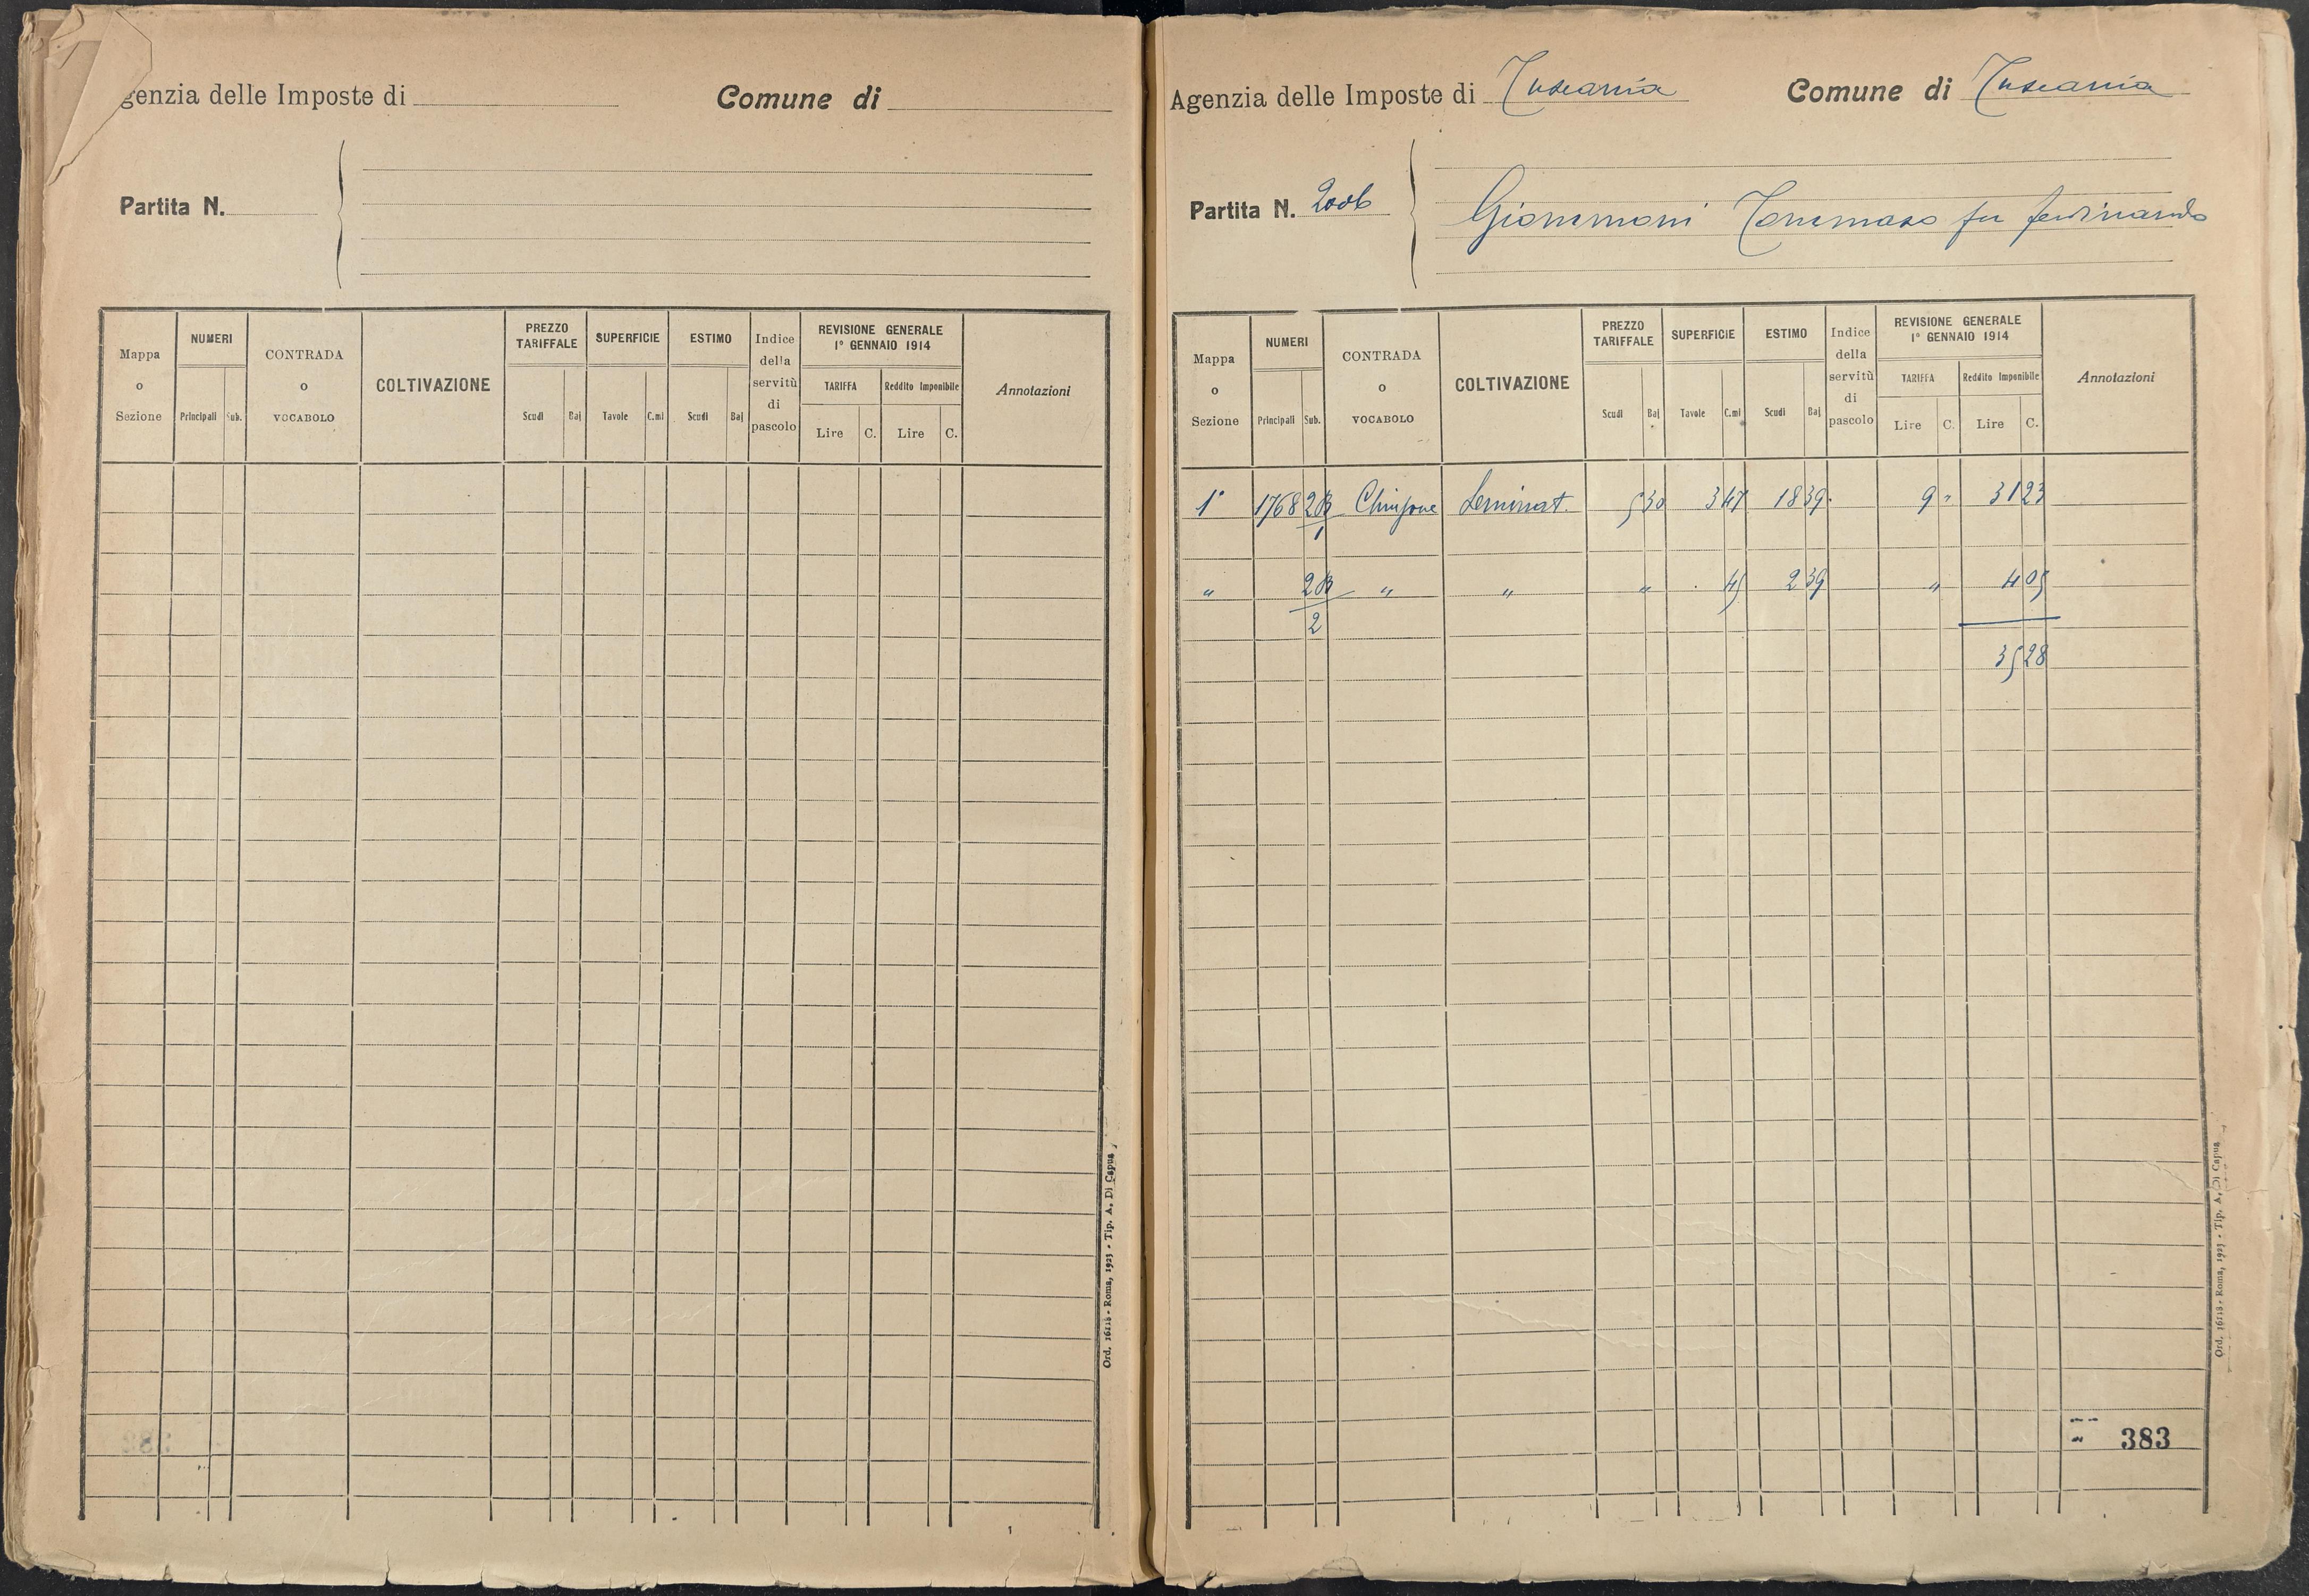 genzia delle Imposte di Comune di
Partita N.
Mappa o Sezione NUMERI Principali Sub. CONTRADA o VOCABOLO COLTIVAZIONE PREZZO TARIFFALE Scudi Baj SUPERFICIE Tavole C.mi ESTIMO Scudi Baj Indice della servitù di pascolo REVISIONE GENERALE 1° GENNAIO 1914 TARIFFA Lire C. Reddito Imponibile Lire C. Annotazioni
Ord. 16118 - Roma, 1923 - Tip. A. Di Capua
Agenzia delle Imposte di Tuscania Comune di Tuscania
Partita N. 2006 Giommoni Tommaso fu Ferdinando
Mappa o Sezione NUMERI Principali Sub. CONTRADA o VOCABOLO COLTIVAZIONE PREZZO TARIFFALE Scudi Baj SUPERFICIE Tavole C.mi ESTIMO Scudi Baj Indice della servitù di pascolo REVISIONE GENERALE 1° GENNAIO 1914 TARIFFA Lire C. Reddito Imponibile Lire C. Annotazioni
1° 1768 2B/1 Seminat. 5 30 3 47 18 39 9 " 31 23
" 2B/2 " " " 45 2 39 " 4 05
35 28
383
Ord. 16118 - Roma, 1923 - Tip. A. Di Capua